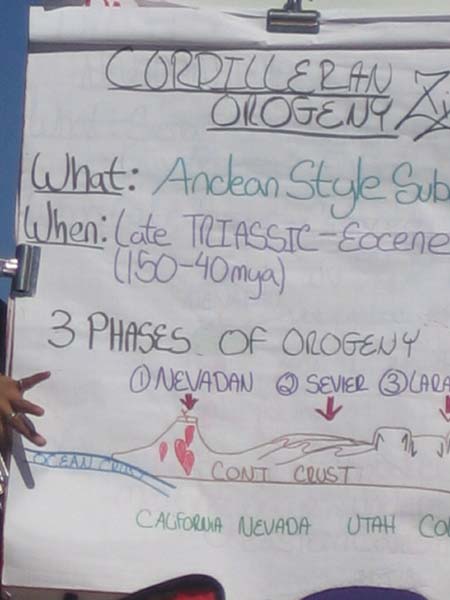 CORDILLERAN
OROGENY
What: Andean Style Sub
When: Late TRIASSIC-Eocene
(150-40mya)
3 PHASES OF OROGENY
① NEVADAN ② SEVIER ③ LARA
OCEAN CRUST CONT CRUST
CALIFORNIA NEVADA UTAH CO